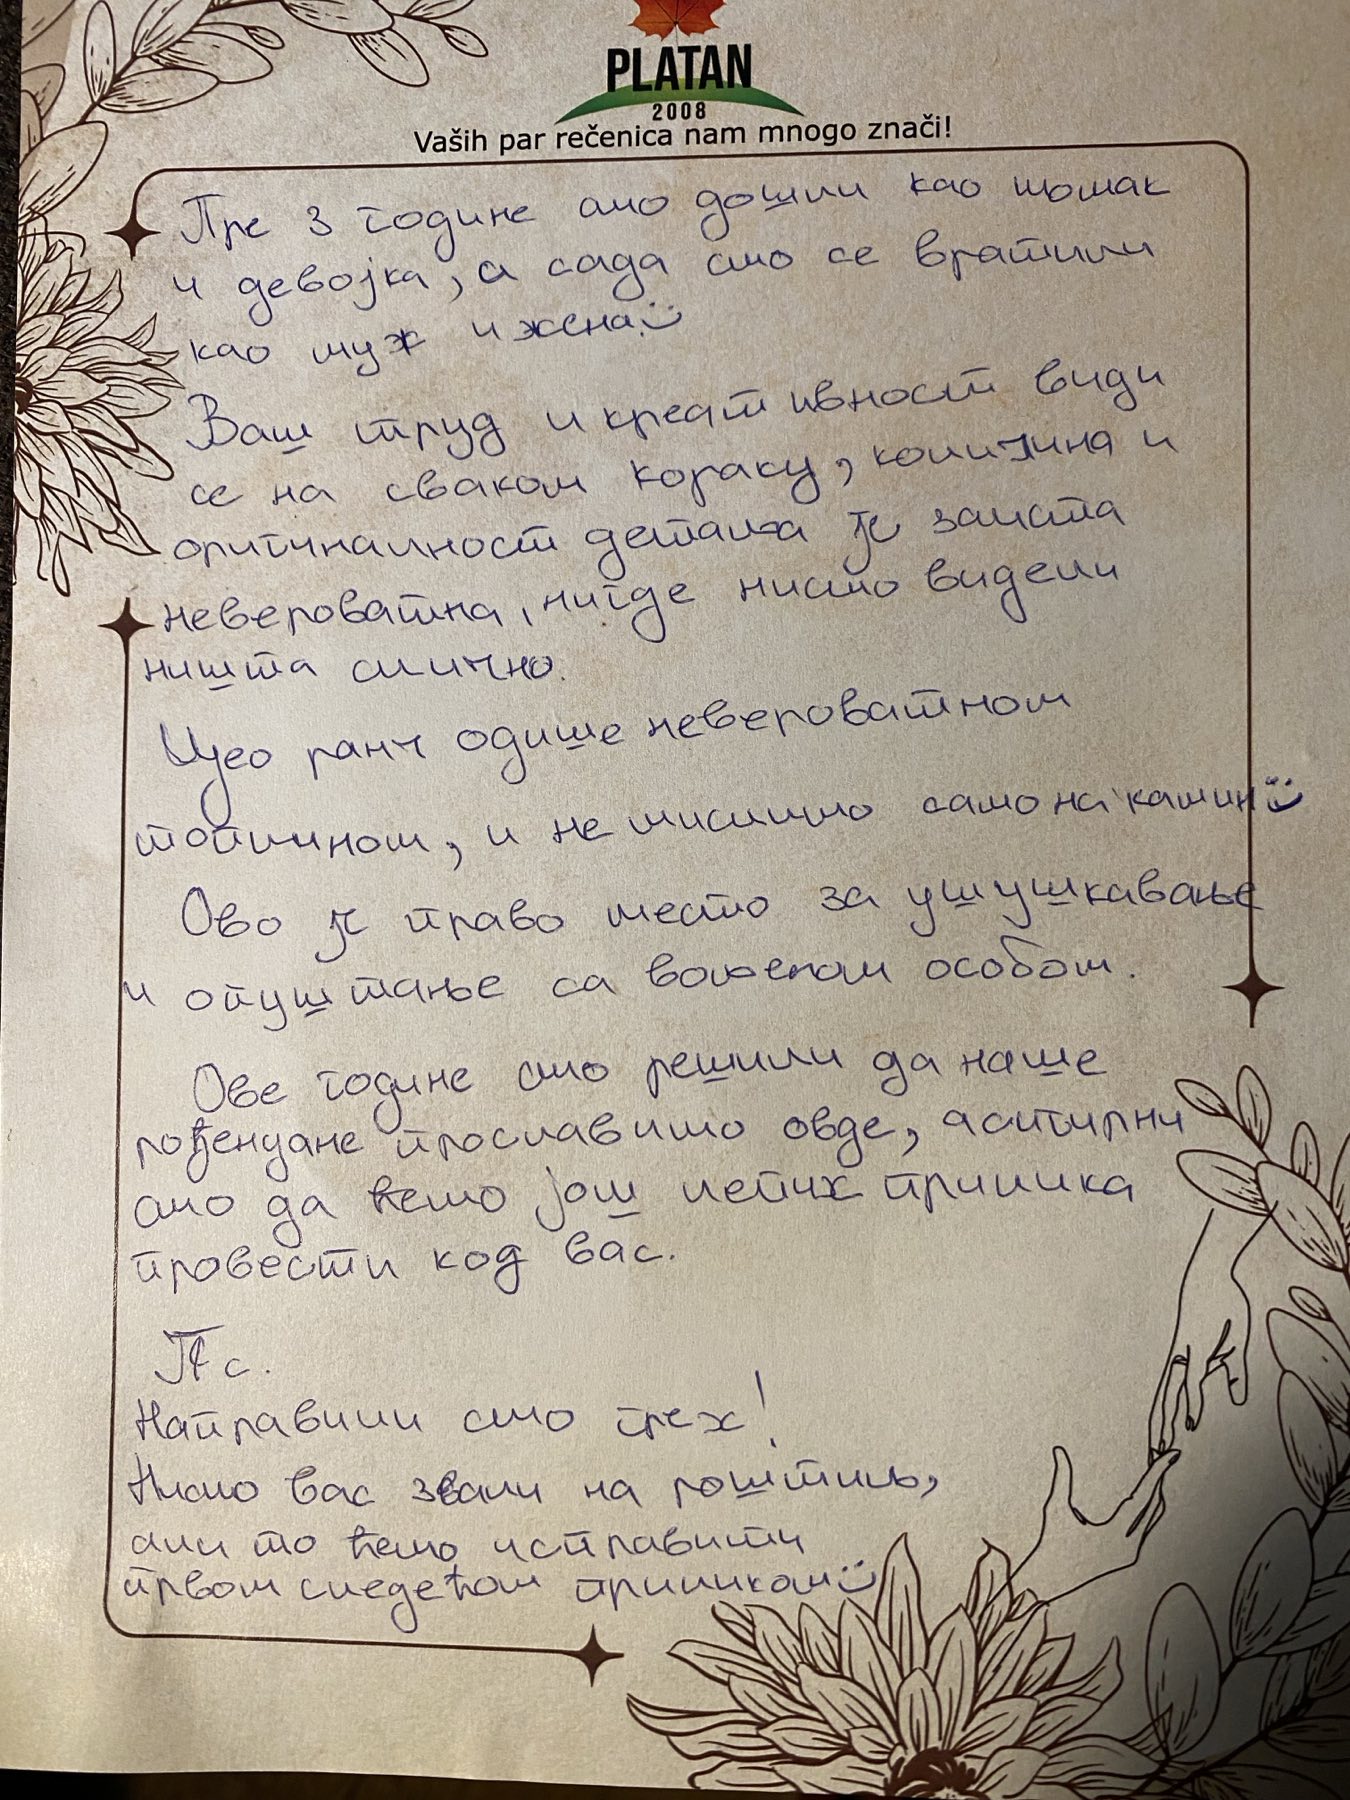 PLATAN
2008
Vaših par rečenica nam mnogo znači!
Пре 3 године смо дошли као момак
и девојка, а сада смо се вратили
као муж и жена. :)
Ваш труд и креативност види
се на сваком кораку, количина и
оригиналност детаља је заиста
невероватна, нигде нисмо видели
ништа слично.
Цео ранч одише невероватном
топлином, и не мислимо само на камин :)
Ово је право место за ушушкавање
и опуштање са вољеном особом.
Ове године смо решили да наше
рођендане прославимо овде, а сигурни
смо да ћемо још лепих прилика
провести код вас.
Пс.
Направили смо грех!
Нисмо вас звали на роштиљ,
али то ћемо исправити
првом следећом приликом :)